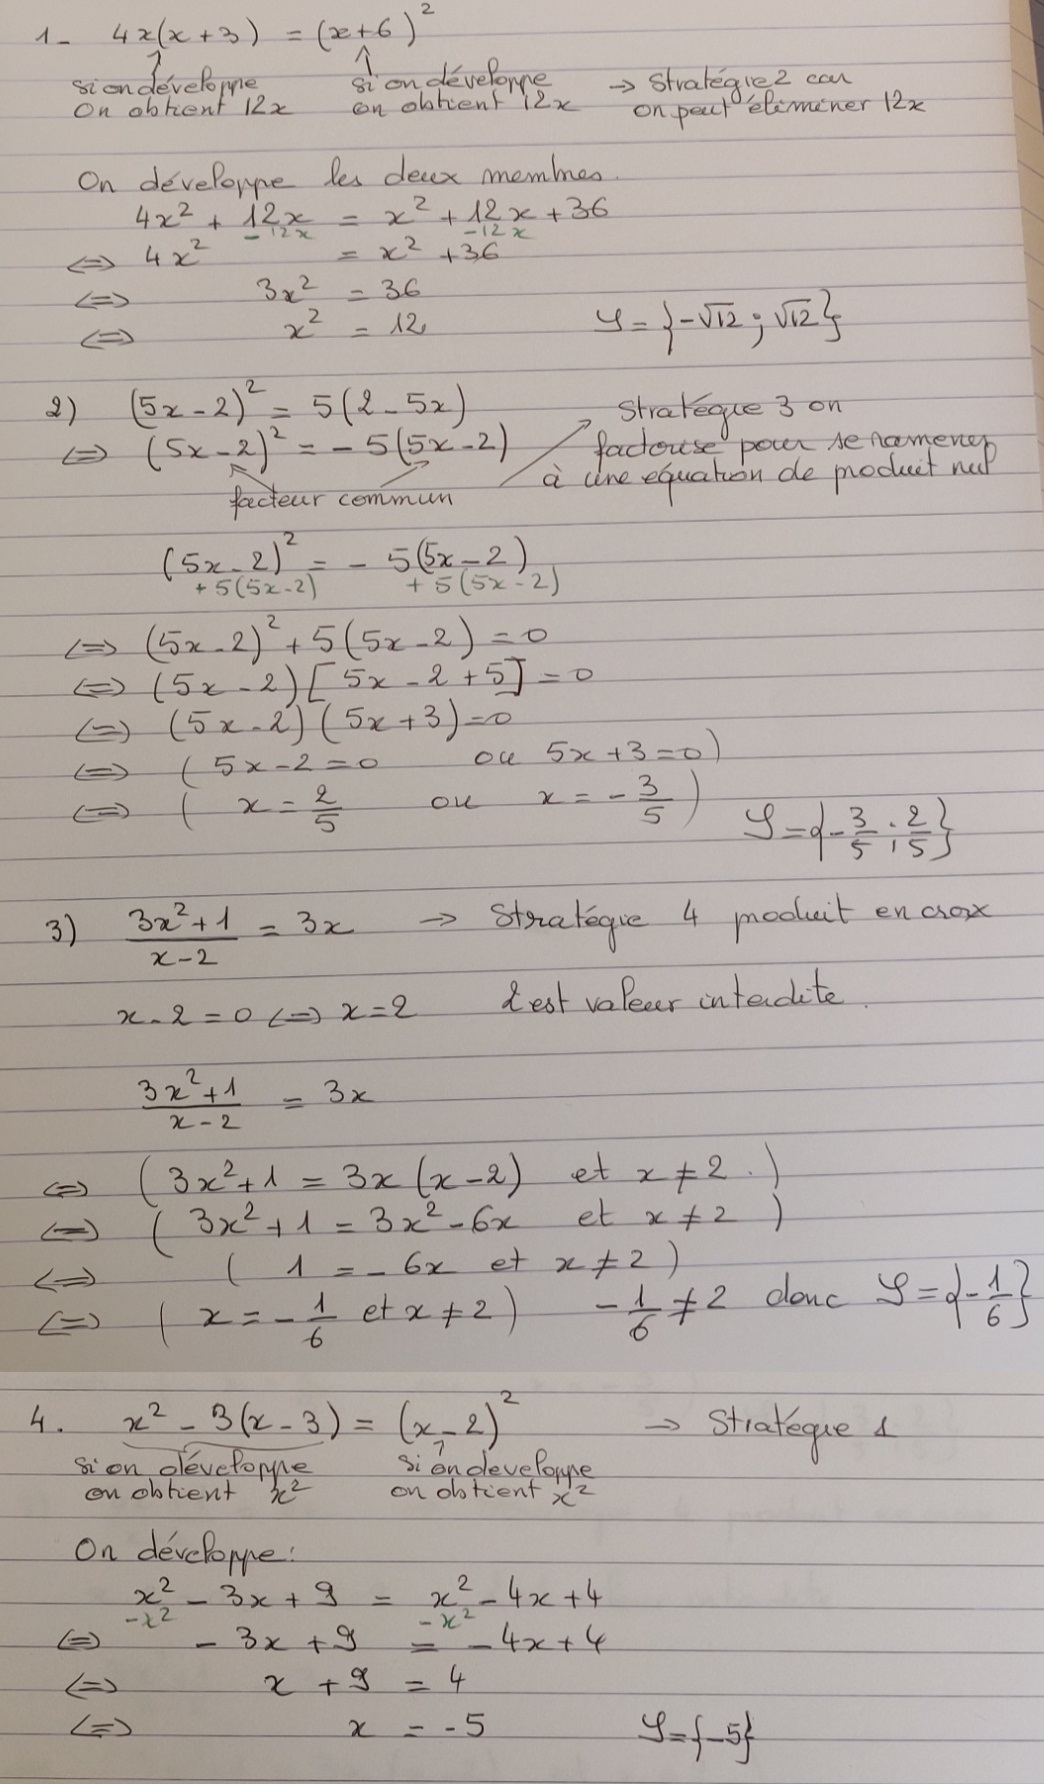 1- 4x(x+3) = (x+6)²
si on développe on obtient 12x
si on développe on obtient 12x
→ Stratégie 2 car on peut éliminer 12x
On développe les deux membres.
4x² + 12x = x² + 12x + 36
-12x -12x
⇔ 4x² = x² + 36
⇔ 3x² = 36
⇔ x² = 12 𝒮 = {-√12 ; √12}
2) (5x-2)² = 5(2-5x)
⇔ (5x-2)² = -5(5x-2)
facteur commun
Stratégie 3 on
factorise pour se ramener
à une équation de produit nul
(5x-2)² = -5(5x-2)
+5(5x-2) +5(5x-2)
⇔ (5x-2)² + 5(5x-2) = 0
⇔ (5x-2)[5x-2+5] = 0
⇔ (5x-2)(5x+3) = 0
⇔ (5x-2=0 ou 5x+3=0)
⇔ (x = 2/5 ou x = -3/5) 𝒮 = {-3/5 ; 2/5}
3) (3x²+1)/(x-2) = 3x → Stratégie 4 produit en croix
x-2=0 ⇔ x=2 2 est valeur interdite.
(3x²+1)/(x-2) = 3x
⇔ (3x²+1 = 3x(x-2) et x≠2.)
⇔ (3x²+1 = 3x²-6x et x≠2)
⇔ (1 = -6x et x≠2)
⇔ (x = -1/6 et x≠2) -1/6 ≠ 2 donc 𝒮 = {-1/6}
4. x² - 3(x-3) = (x-2)² → Stratégie 1
si on développe on obtient x²
si on developpe on obtient x²
On développe :
x² - 3x + 9 = x² - 4x + 4
-x² -x²
⇔ -3x + 9 = -4x + 4
⇔ x + 9 = 4
⇔ x = -5 𝒮 = {-5}